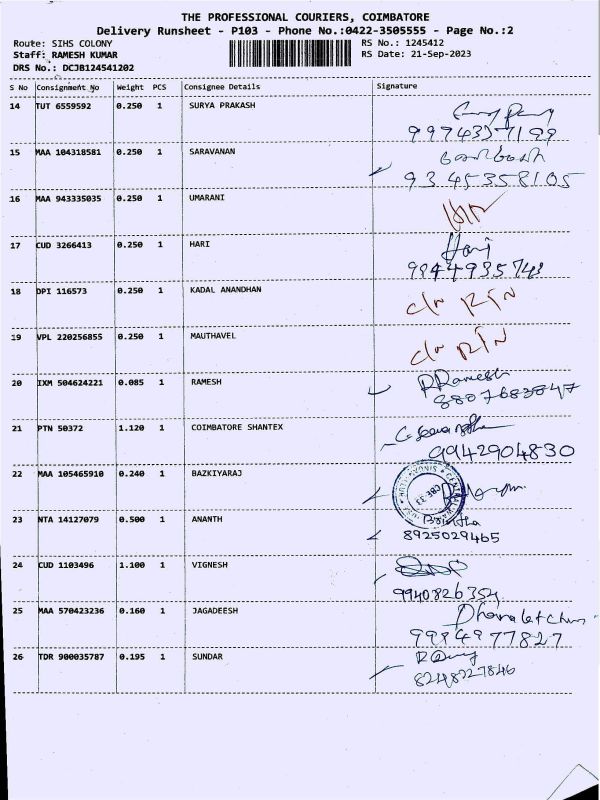 THE PROFESSIONAL COURIERS, COIMBATORE
Delivery Runsheet - P103 - Phone No.:0422-3505555 - Page No.:2
Route: SIHS COLONY RS No.: 1245412
Staff: RAMESH KUMAR RS Date: 21-Sep-2023
DRS No.: DCJB124541202
S No Consignment No Weight PCS Consignee Details Signature
14 TUT 6559592 0.250 1 SURYA PRAKASH
15 MAA 104318581 0.250 1 SARAVANAN
9345358105
16 MAA 943335035 0.250 1 UMARANI
17 CUD 3266413 0.250 1 HARI Hari
18 DPI 116573 0.250 1 KADAL ANANDHAN
19 VPL 220256855 0.250 1 MAUTHAVEL
20 IXM 504624221 0.085 1 RAMESH R Ramesh
21 PTN 50372 1.120 1 COIMBATORE SHANTEX
9942904830
22 MAA 105465910 0.240 1 BAZKIYARAJ
23 NTA 14127079 0.500 1 ANANTH
8925029465
24 CUD 1103496 1.100 1 VIGNESH
9940826354
25 MAA 570423236 0.160 1 JAGADEESH
9984977827
26 TDR 900035787 0.195 1 SUNDAR
8248227846